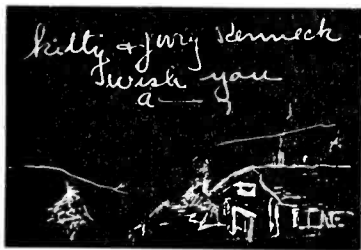 Kitty & Jerry Kenneck
wish you
a